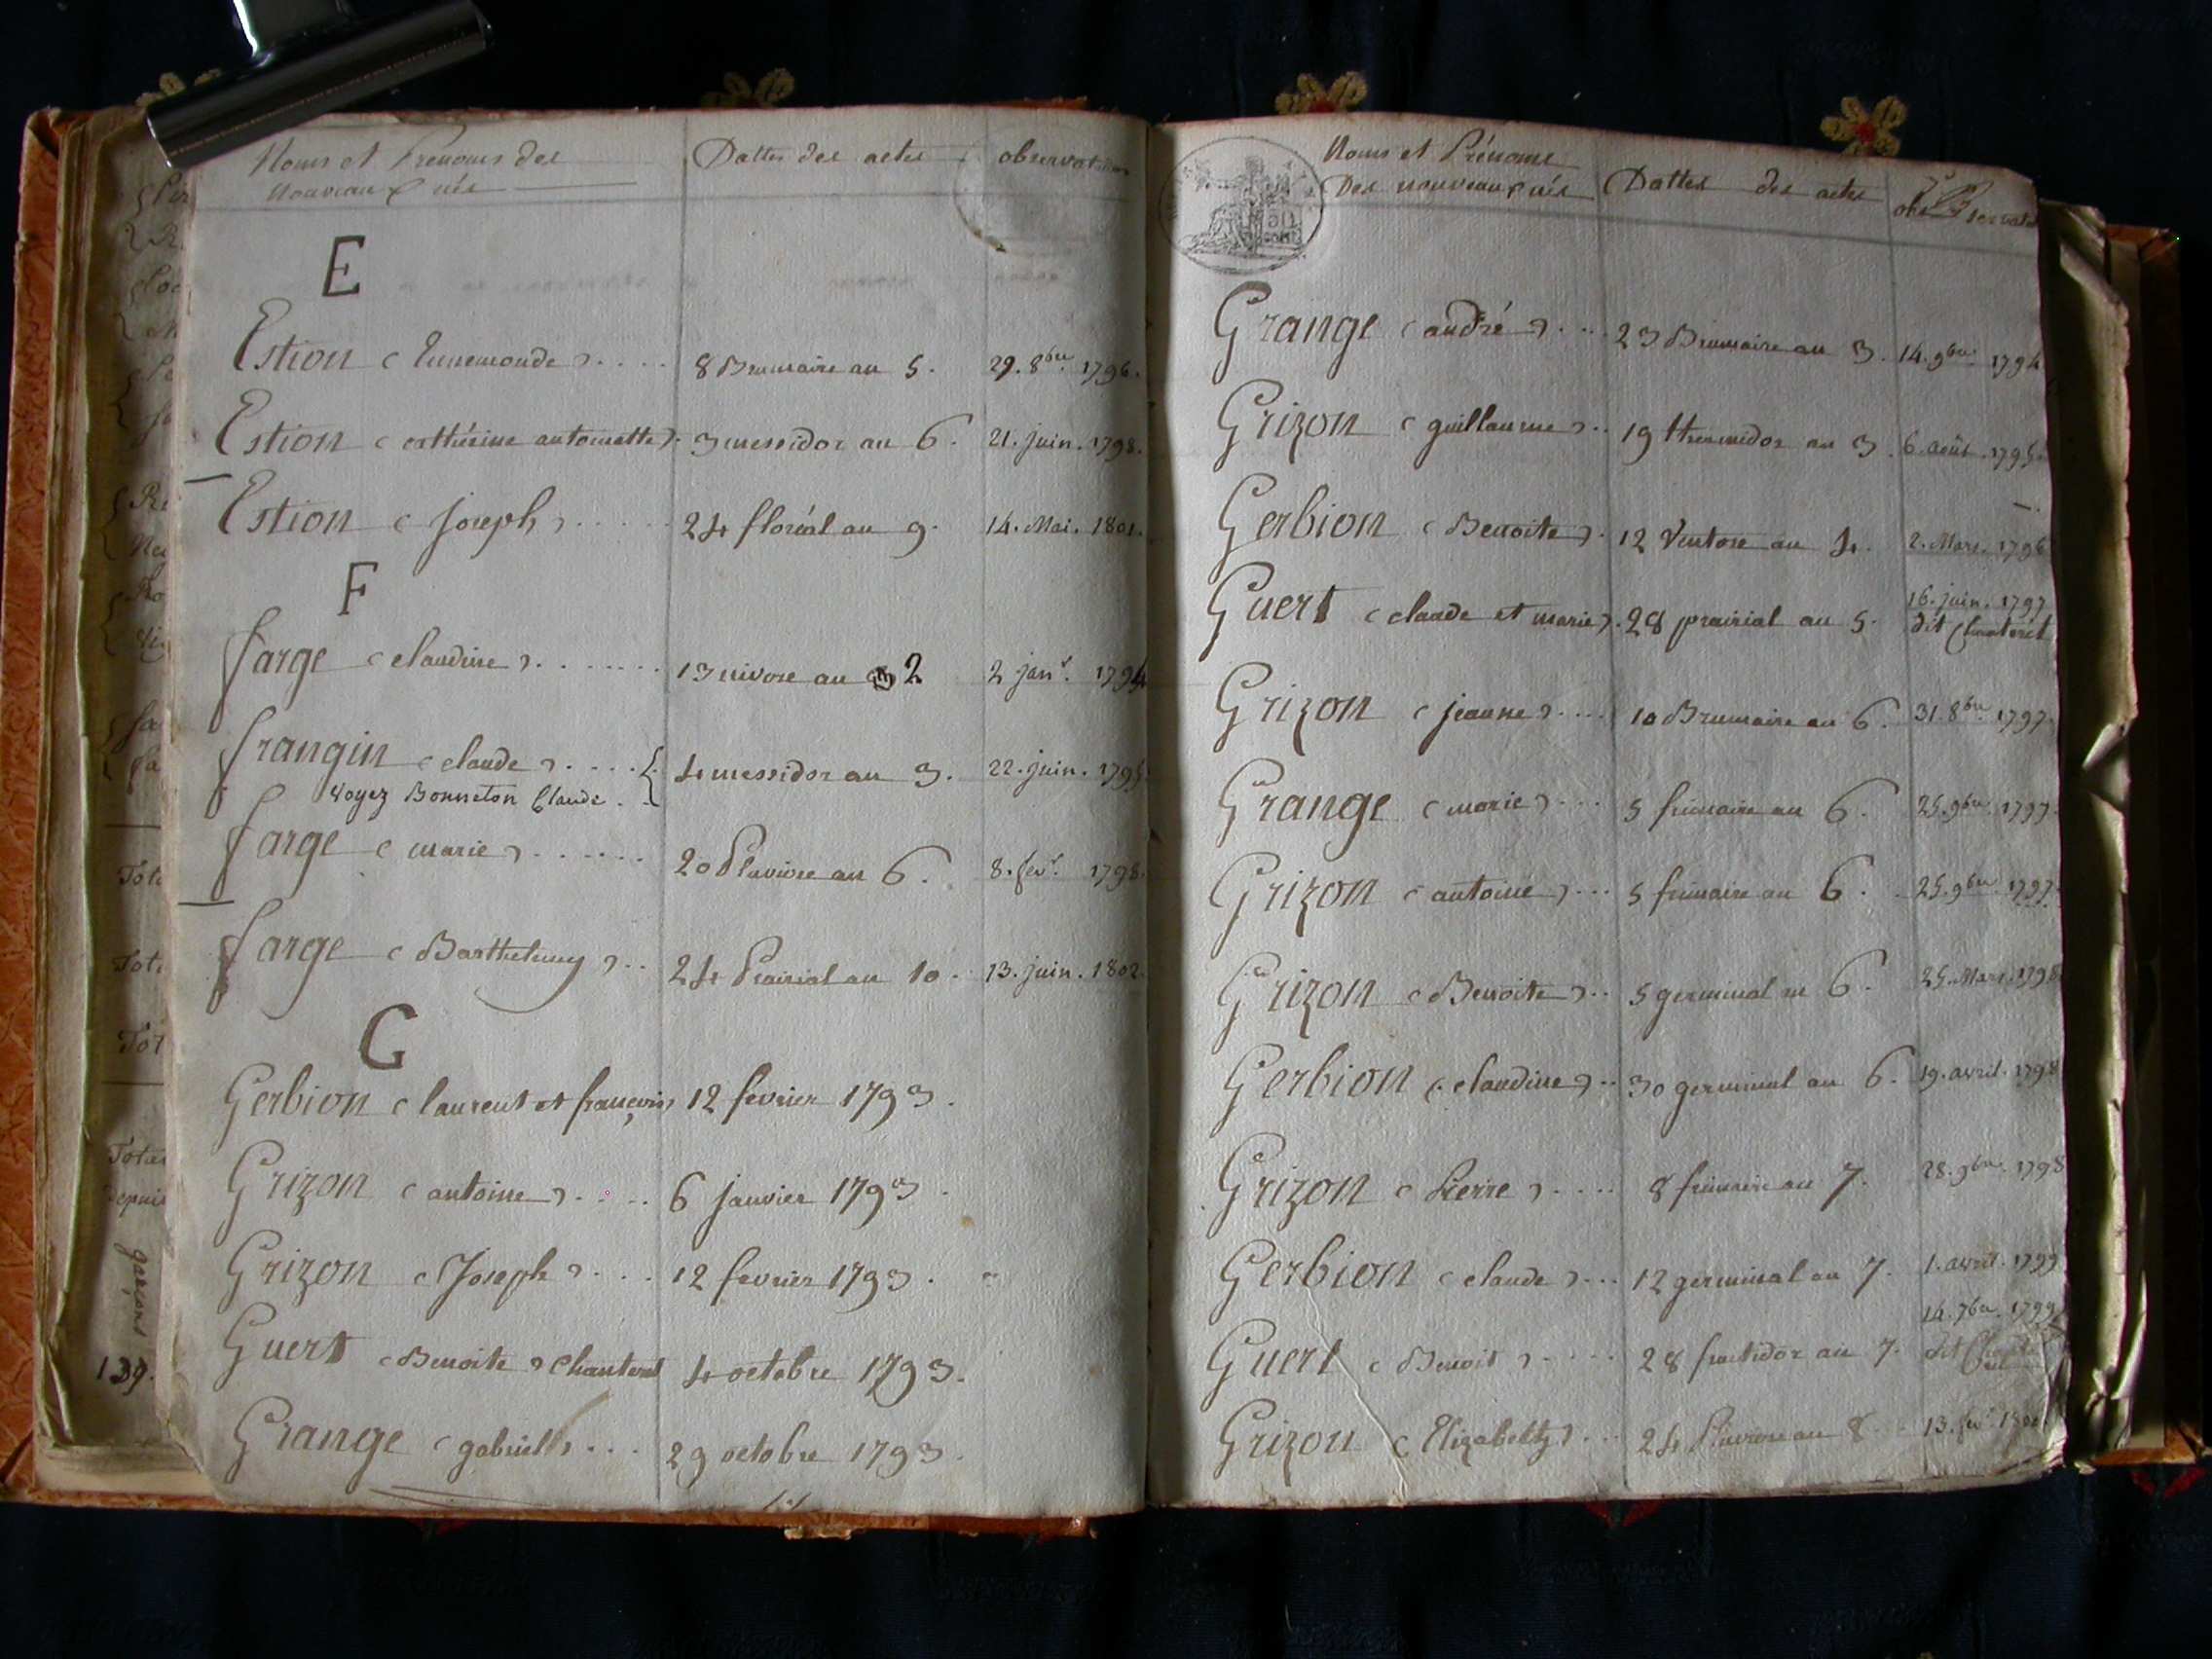 Noms et Prénoms des Dattes des actes observations
Nouveaux nés
E
Estion (Ennemonde) .... 8 Brumaire an 5. 29. 8bre 1796.
Estion (catherine antoinette). 3 messidor an 6. 21. juin. 1798.
Estion (Joseph) ..... 24 floréal an 9. 14. Mai. 1801.
F
farge (claudine) ....... 13 nivose an 2 2 janr. 1794
frangin (claude) .... { 4 messidor an 3. 22. juin. 1795
Voyez Bonneton Claude.
farge (marie) ...... 20 Pluviose an 6. 8. fevr. 1798.
farge (Barthelemy) .. 24 Prairial an 10. 13. juin. 1802.
G
Gerbion (laurent et françois) 12 fevrier 1793.
Grizon (antoine) .... 6 janvier 1793.
Grizon (Joseph) ... 12 fevrier 1793.
Guert (Benoite) Chanteret 4 octobre 1793.
Grange (gabriell) ... 29 octobre 1793.
Noms et Prénoms
Des nouveaux nés Dattes des actes observat
Grange (andré) .... 23 Brumaire an 3. 14. 9bre 1794
Grizon (guillaume) .. 19 thermidor an 3. 6. août. 1795.
Gerbion (Benoite). 12 Ventose an 4. 2. Mars. 1796
Guert (claude et marie). 28 prairial an 5. 16. juin. 1797
dit Chanteret
Grizon (jeanne) .... 10 Brumaire an 6. 31. 8bre 1797.
Grange (marie) ... 5 frimaire an 6. 25. 9bre 1797.
Grizon (antoine) ... 5 frimaire an 6. 25. 9bre 1797.
Grizon (Benoite) .. 5 germinal an 6. 25. Mars. 1798
Gerbion (claudine) .. 30 germinal an 6. 19. avril. 1798
Grizon (Pierre) .... 8 frimaire an 7. 28. 9bre 1798
Gerbion (claude) ... 12 germinal an 7. 1. avril. 1799
14. 7bre 1799
Guert (Benoit) ..... 28 fructidor an 7. dit
Grizon (Elizabeth) ... 24 Pluviose an 8. 13. fevr 1800
garçons
139.